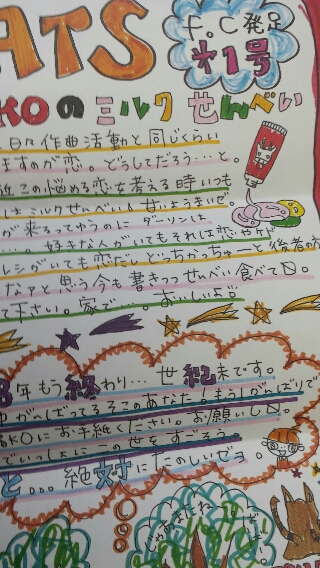 ATS
F.C発足
第1号
KOのミルクせんべい
日々作曲活動と同じくらい
ますのが恋。どうしてだろう…と。
近この悩める恋を考える時いつも
はミルクせんべい
が来るってゆうのに ダーリンは
好きな人がいてもそれは恋やケド
レシがいても恋だし どっちかっちゅーと後者の方
なァと思う今も書きつつせんべい食べて
て下さい。家で…。おいしいよ
8年もう終わり… 世紀末です。
がんばってるそこのあなた!もうしがんばりで
KOにお手紙ください。お願いし
でいっしょにこの世をすごそう。
と…絶対にたのしいぜョ。